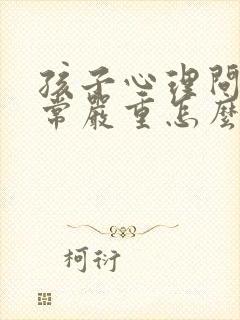 孩子心理問
常嚴重怎麼
柯衍